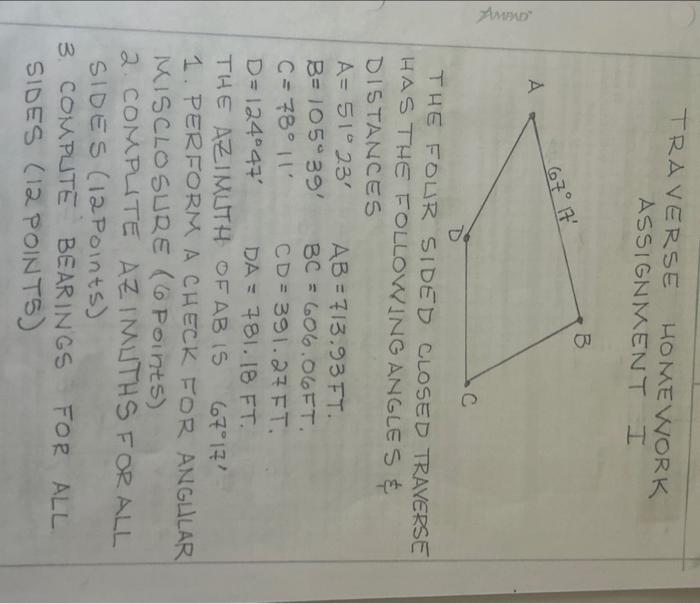 AMPAD
TRAVERSE HOMEWORK
ASSIGNMENT I
A
67° 17'
B
D
C
THE FOUR SIDED CLOSED TRAVERSE
HAS THE FOLLOWING ANGLES &
DISTANCES
A = 51° 23' AB = 713.93 FT.
B = 105° 39' BC = 606.06 FT.
C = 78° 11' CD = 391.27 FT.
D = 124° 47' DA = 781.18 FT.
THE AZIMUTH OF AB IS 67° 17'
1. PERFORM A CHECK FOR ANGULAR
MISCLOSURE (6 POINTS)
2. COMPUTE AZIMUTHS FOR ALL
SIDES (12 POINTS)
3. COMPUTE BEARINGS FOR ALL
SIDES (12 POINTS)